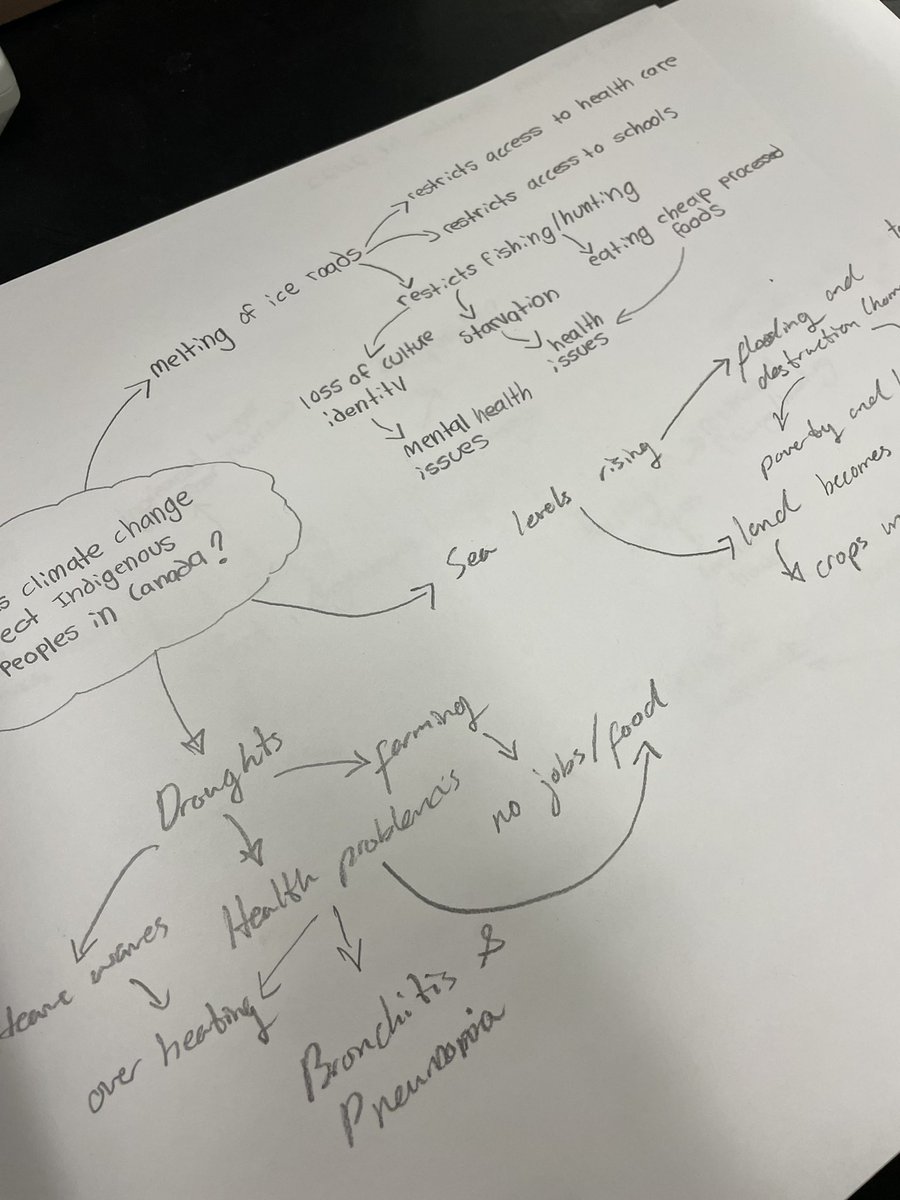 restricts access to health care
restricts access to schools
melting of ice roads
resticts fishing/hunting
eating cheap processed
foods
loss of culture
identity
starvation
health
issues
mental health
issues
climate change
Indigenous
Peoples in Canada?
Sea levels rising
flooding and
destruction
poverty and
land becomes
crops
Droughts
farming
no jobs/food
Health problems
waves
over heating
Bronchitis &